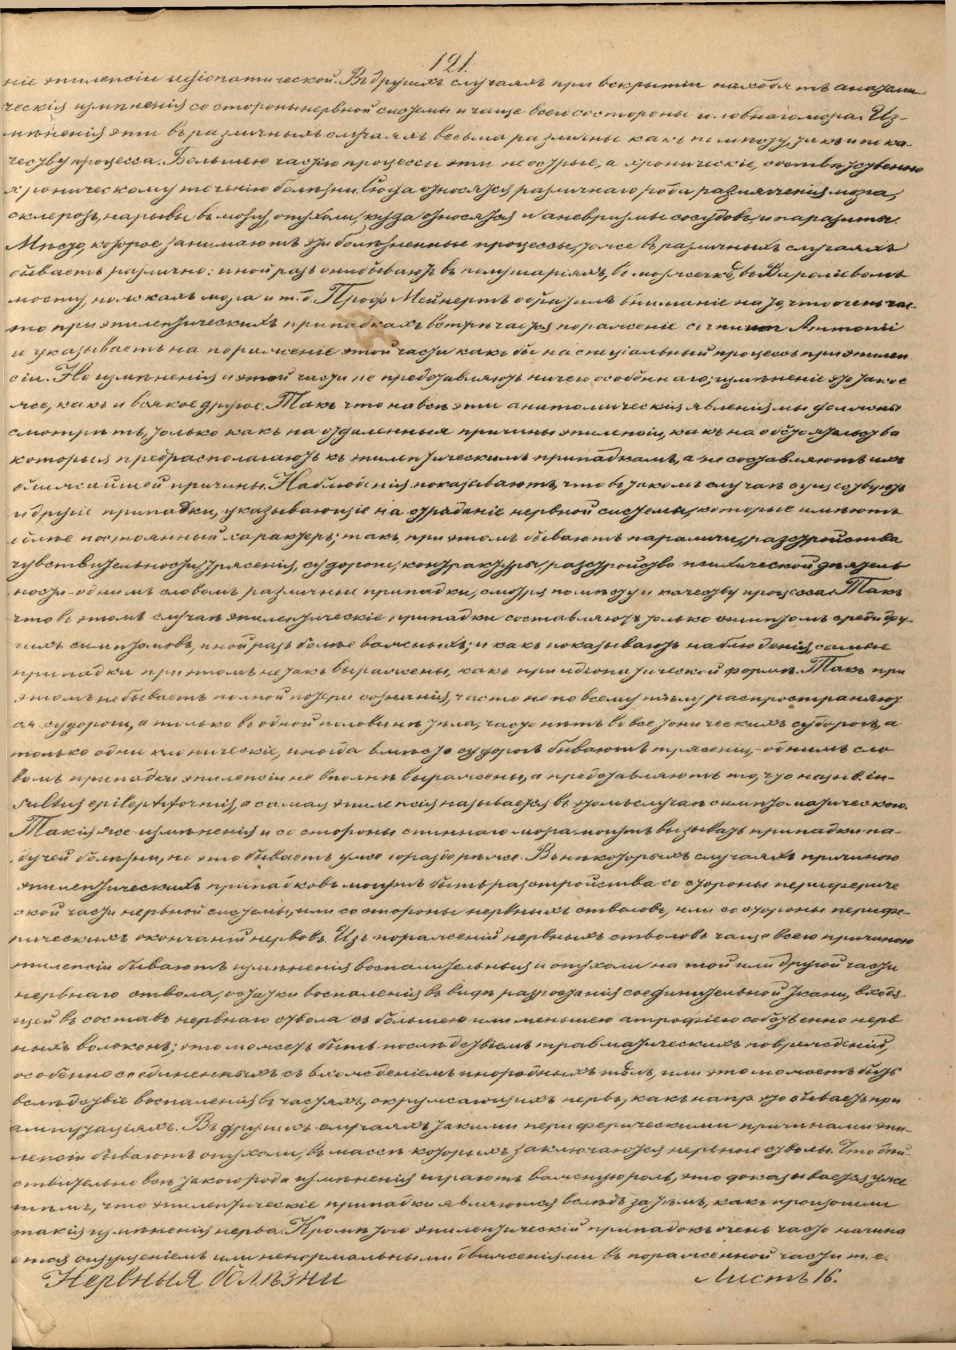 121.
ніе эпилепсіи идіопатической. Въ другихъ случаяхъ при вскрытіи находятъ анатоми
ческія измѣненія со стороны нервной системы и чаще всего со стороны головнаго мозга. Из-
мѣненія эти въ различныхъ случаяхъ весьма различны какъ по мѣсту, такъ и по ка-
честву процесса. Большею частію процессы эти не острые, а хроническіе, соотвѣтственно
хроническому теченію болѣзни. Сюда относятся различнаго рода размягченія мозга,
склерозъ, нарывы въ мозгу, опухоли, сюда относятся и аневризмы сосудовъ, и паразиты.
Мѣсто, которое занимаютъ эти болѣзненные процессы, тоже въ различныхъ случаяхъ
бываетъ различно: иной разъ они бываютъ въ полушаріяхъ, въ мозжечкѣ, въ Вароліевомъ
мосту, ножкахъ мозга и т.д. Проф. Мейнертъ обратилъ вниманіе на то, что очень час-
то при эпилептическихъ припадкахъ встрѣчается пораженіе cornu Ammonii
и указываетъ на пораженіе этой части какъ бы на спеціальный процессъ при эпилеп
сіи. Но измѣненія и этой части не представляютъ ничего особеннаго; измѣненіе это такое
же, какъ и всякое другое. Такъ что на всѣ эти анатомическія явленія мы должны
смотрѣть, только какъ на отдаленныя причины эпилепсіи, какъ на обстоятельства
которыя предрасполагаютъ къ эпилептическимъ припадкамъ, а не составляютъ ихъ
ближайшей причины. Наблюденія показываютъ, что въ такомъ случаѣ существуютъ
и другіе припадки, указывающіе на страданіе нервной системы, которые имѣютъ
болѣе постоянный характеръ; такъ, при этомъ бываютъ параличи, разстройства
чувствительности, трясенія, судороги, контрактуры, разстройство психической дѣятель
ности - однимъ словомъ различные припадки, смотря по мѣсту и качеству процесса. Такъ
что въ этомъ случаѣ эпилептическіе припадки составляютъ только симптомъ среди дру-
гихъ симптомовъ, иной разъ болѣе важныхъ; и какъ показываютъ наблюденія, самые
припадки при этомъ не такъ выражены, какъ при идіопатической формѣ. Такъ при
этомъ не бываетъ полной потери сознанія, часто не по всему тѣлу распространяют
ся судороги, а только въ одной половинѣ тѣла, часто нѣтъ вовсе тоническихъ судорогъ, а
только одни клоническіе, иногда вмѣсто судорогъ бываютъ трясенія, - однимъ сло
вомъ припадки эпилепсіи не вполнѣ выражены, а представляютъ то, что назыв. in-
sultus epileptiformis, а самая эпилепсія называется въ этомъ случаѣ симптоматическою.
Такія же измѣненія и со стороны спиннаго мозга могутъ вызывать припадки па-
дучей болѣзни, но это бываетъ уже гораздо рѣже. Въ нѣкоторыхъ случаяхъ причиною
эпилептическихъ припадковъ могутъ быть разстройства со стороны перифериче
ской части нервной системы, или со стороны нервныхъ стволовъ, или со стороны перифе-
рическихъ окончаній нервовъ. Изъ пораженій нервныхъ стволовъ чаще всего причиною
эпилепсіи бываютъ измѣненія воспалительныя и опухоли на той или другой части
нервнаго ствола, остатки воспаленія въ видѣ разростанія соединительной ткани, входя-
щей въ составъ нервнаго ствола съ большею или меньшею атрофіею собственно нерв
ныхъ волоконъ; это можетъ быть послѣдствіемъ травматическихъ поврежденій,
особенно соединенныхъ съ вхожденіемъ инородныхъ тѣлъ, или это можетъ быть
вслѣдствіе воспаленія въ частяхъ, окружающихъ нервъ, какъ напр. это бываетъ при
ампутаціяхъ. Въ другихъ случаяхъ такими периферическими причинами эпи-
лепсіи бываютъ опухоли, въ массѣ которыхъ заключаются нервные стволы. Что дѣй-
ствительно всѣ такого рода измѣненія играютъ важную роль, это доказывается уже
тѣмъ, что эпилептическіе припадки являются вслѣдъ затѣмъ, какъ произошли
такія измѣненія нерва. Кромѣ того эпилептическій припадокъ очень часто начина
ется ощущеніемъ или ненормальными движеніями въ пораженной части т. е.
Нервныя болѣзни Листъ 16.